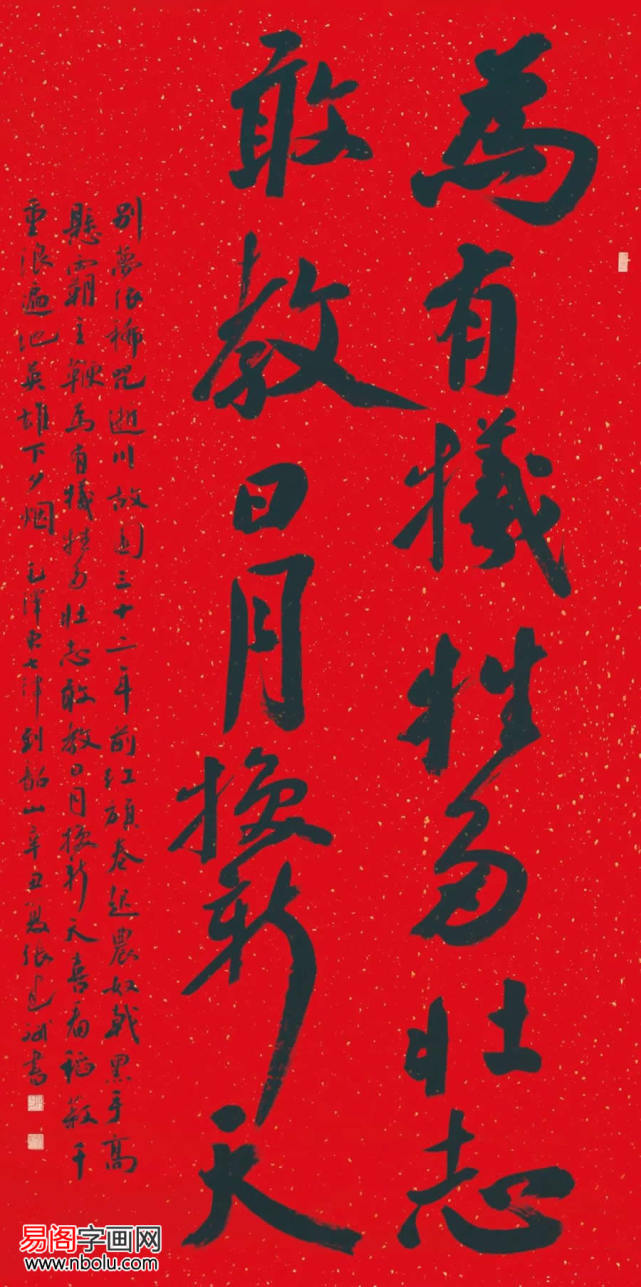 為有犧牲多壯志
敢教日月換新天
别夢依稀咒逝川故園三十二年前紅旗卷起農奴戟黑手高
懸霸主鞭為有犧牲多壯志敢教日月換新天喜看稻菽千
重浪遍地英雄下夕烟 毛澤東七律到韶山辛丑夏張書
易阁字画网
www.nbolu.com